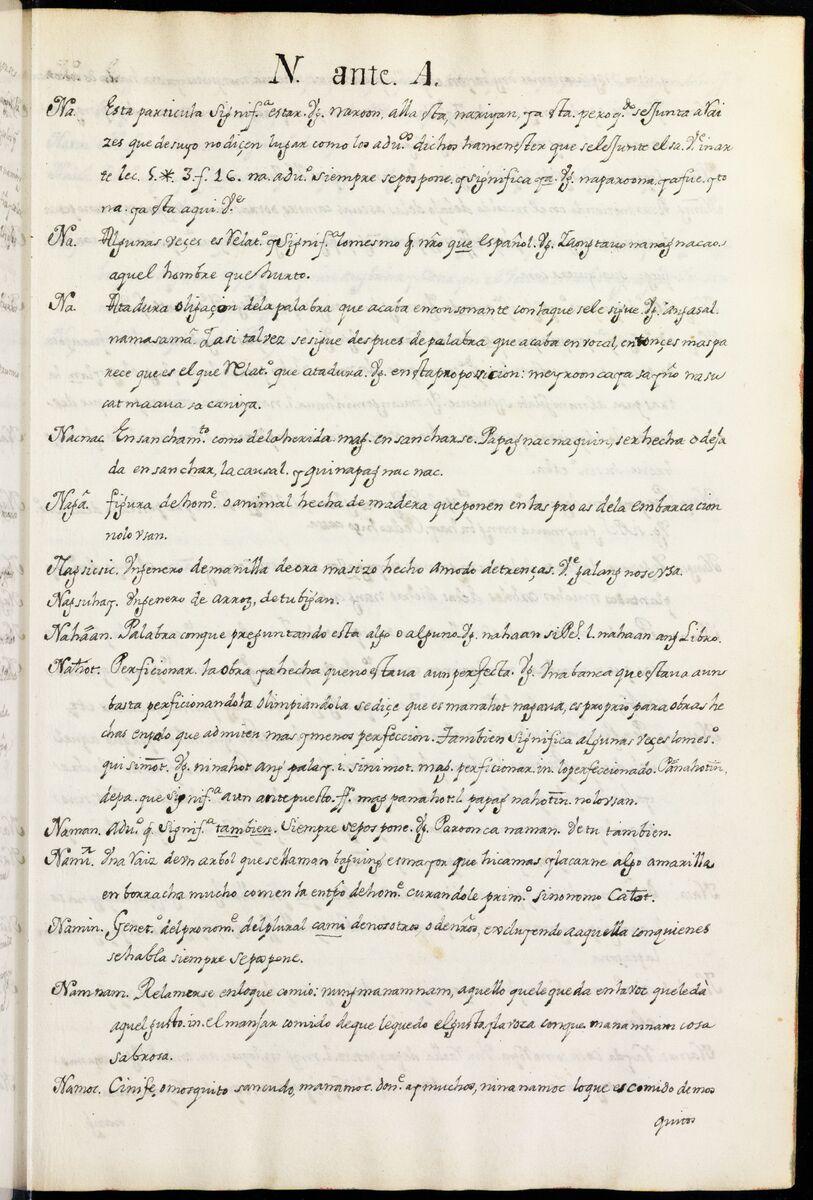 N. ante. A.
Na. Esta particula signif.ª estar. Vg. naroon, alla sta, nariyan, ya sta. pero q.do se Junta a Rai
zes que desuyo no diçen lugar como los adu.os dichos hamenester que sele Junte el sa. V.e in ar
te lec. 5. *. 3. f. 16. na. adu.o siempre sepospone, y significa ya. Vg. naparoona, ya fue. yto
na. ya sta aqui. V.e
Na. Algunas veçes es Relat.o y Signif.ª lo mesmo q nr̃o que Español. Vg. Zang tavo nanagnacao.
aquel hombre que hurto.
Na. Atadura o ligaçon dela palabra que acaba enconsonante con laque sele sigue. Vg. ang asal.
namasamã. Zasi talvez se sigue despues de palabra que acaba en vocal, entonçes mas pa
rece que es el que Relat.o que atadura. Vg. en sta propossicion: meyroon caya sa yño na su
cat maava sa caniya.
Nacnac. Ensancham.to como dela herida. mag. ensancharse. Papagnacnaquin, ser hecha o deja
da ensanchar, la causal. y quinapagnacnac.
Nagã. figura de hom.e o animal hecha de madera que ponen en las proas dela embarcacion
nolo vsan.
Nagsicsic. Vn genero de manilla de ora masizo hecho amodo de trenças. V.e galang nose vsa.
Nagsuhag. Vn genero de arroz, de tubigan.
Nahãan. Palabra conque preguntando esta algo o alguno. Vg. nahaan si Pe.o l. nahaan ang Libro.
Nahot. Perficionar. la obra ya hecha queno stava aun perfecta. Vg. Vna banca que stava aun
basta perficionandola o limpiandola se diçe que es manahot nagava, es proprio para obras he
chas en palo que admiten mas y menos perfeccion. Tambien significa algunas veçes lo mes.o
qui simot. Vg. ninahot ang palay. i. sinimot. mag. perficionar. in. lo perfeccionado. Panahotin,
depa. que signif.ª aun antepuesto. ff. mag panahot. l. papag nahotin. nolo vsan.
Naman. Adu.o q signif.ª tambien. Siempre sepospone. Vg. Paroon ca naman. Ve tu tambien.
Namĩ. Vna Raiz de vn arbol que se llaman baguing es mayor que hicamas, y la carne algo amarilla
enborracha mucho comenla en tp̃o de hom.e curandole prim.o sinonomo Calot.
Namin. Genet.o del pronom.e del plural cami de nosotros o de nr̃os, excluyendo a aquella con quienes
se habla siempre sepospone.
Namnam. Relamerse en loque comio: nung manamnam, aquello que le queda en la voc que le dà
aquel gusto. in. el manjar comido de que le quedo el gusta, y la voca con que. manamnam cosa
sabrosa.
Namoc. Cinife, o mosquito sancudo, manamoc. don.e ay muchos, nina namoc lo que es comido de mos
quitos